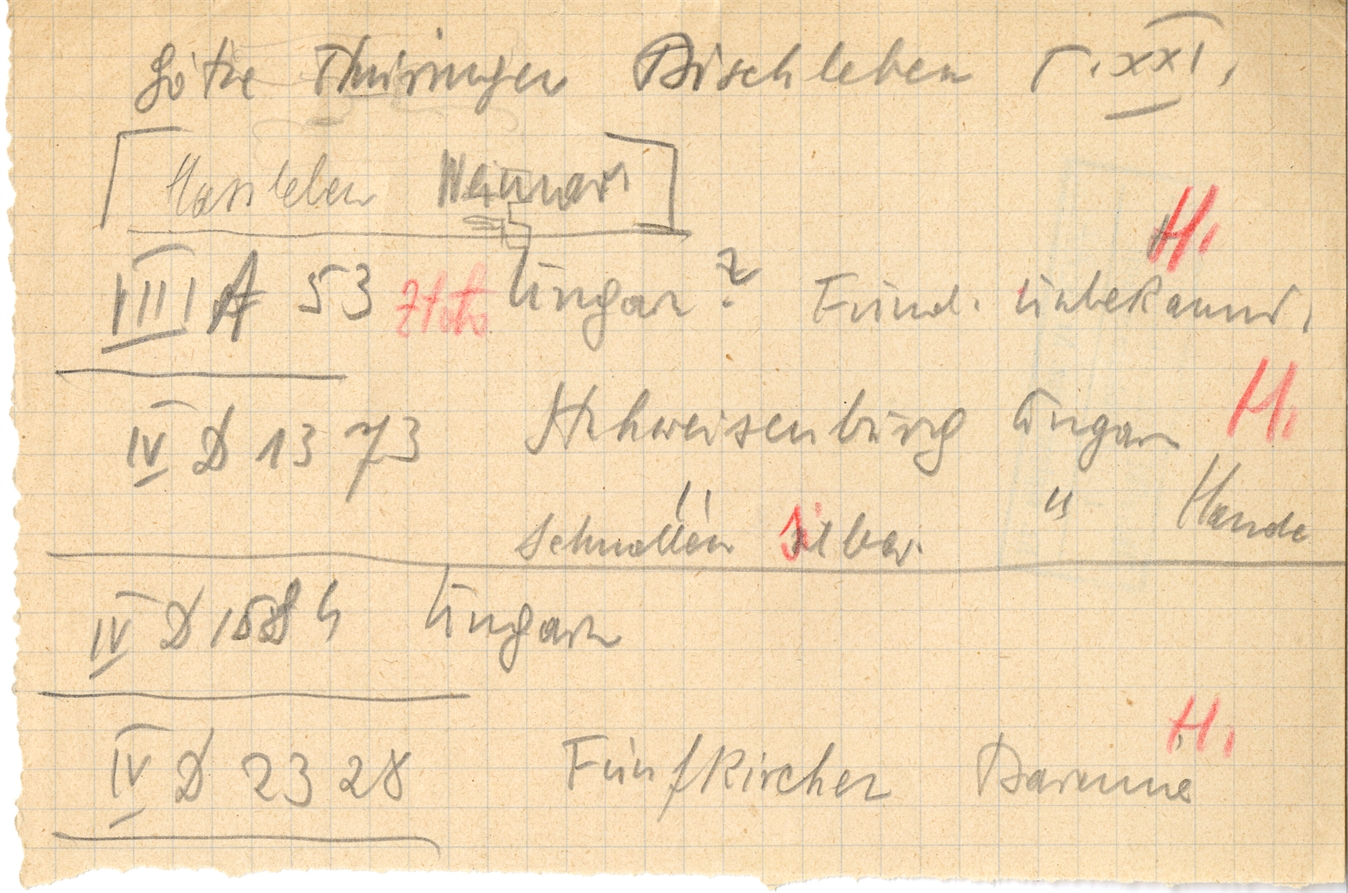 Götze Thüringen Bischleben T. XXI.
[Hassleben Weimar]
H.
III A 53 Ungar? Fund. Unbekannt.
IV D 1373 Stuhweisenburg Ungarn H.
Schnallen Silber. " Hande
IV D 1584 Ungarn
H.
IV D 2328 Fünfkirchen Baranya